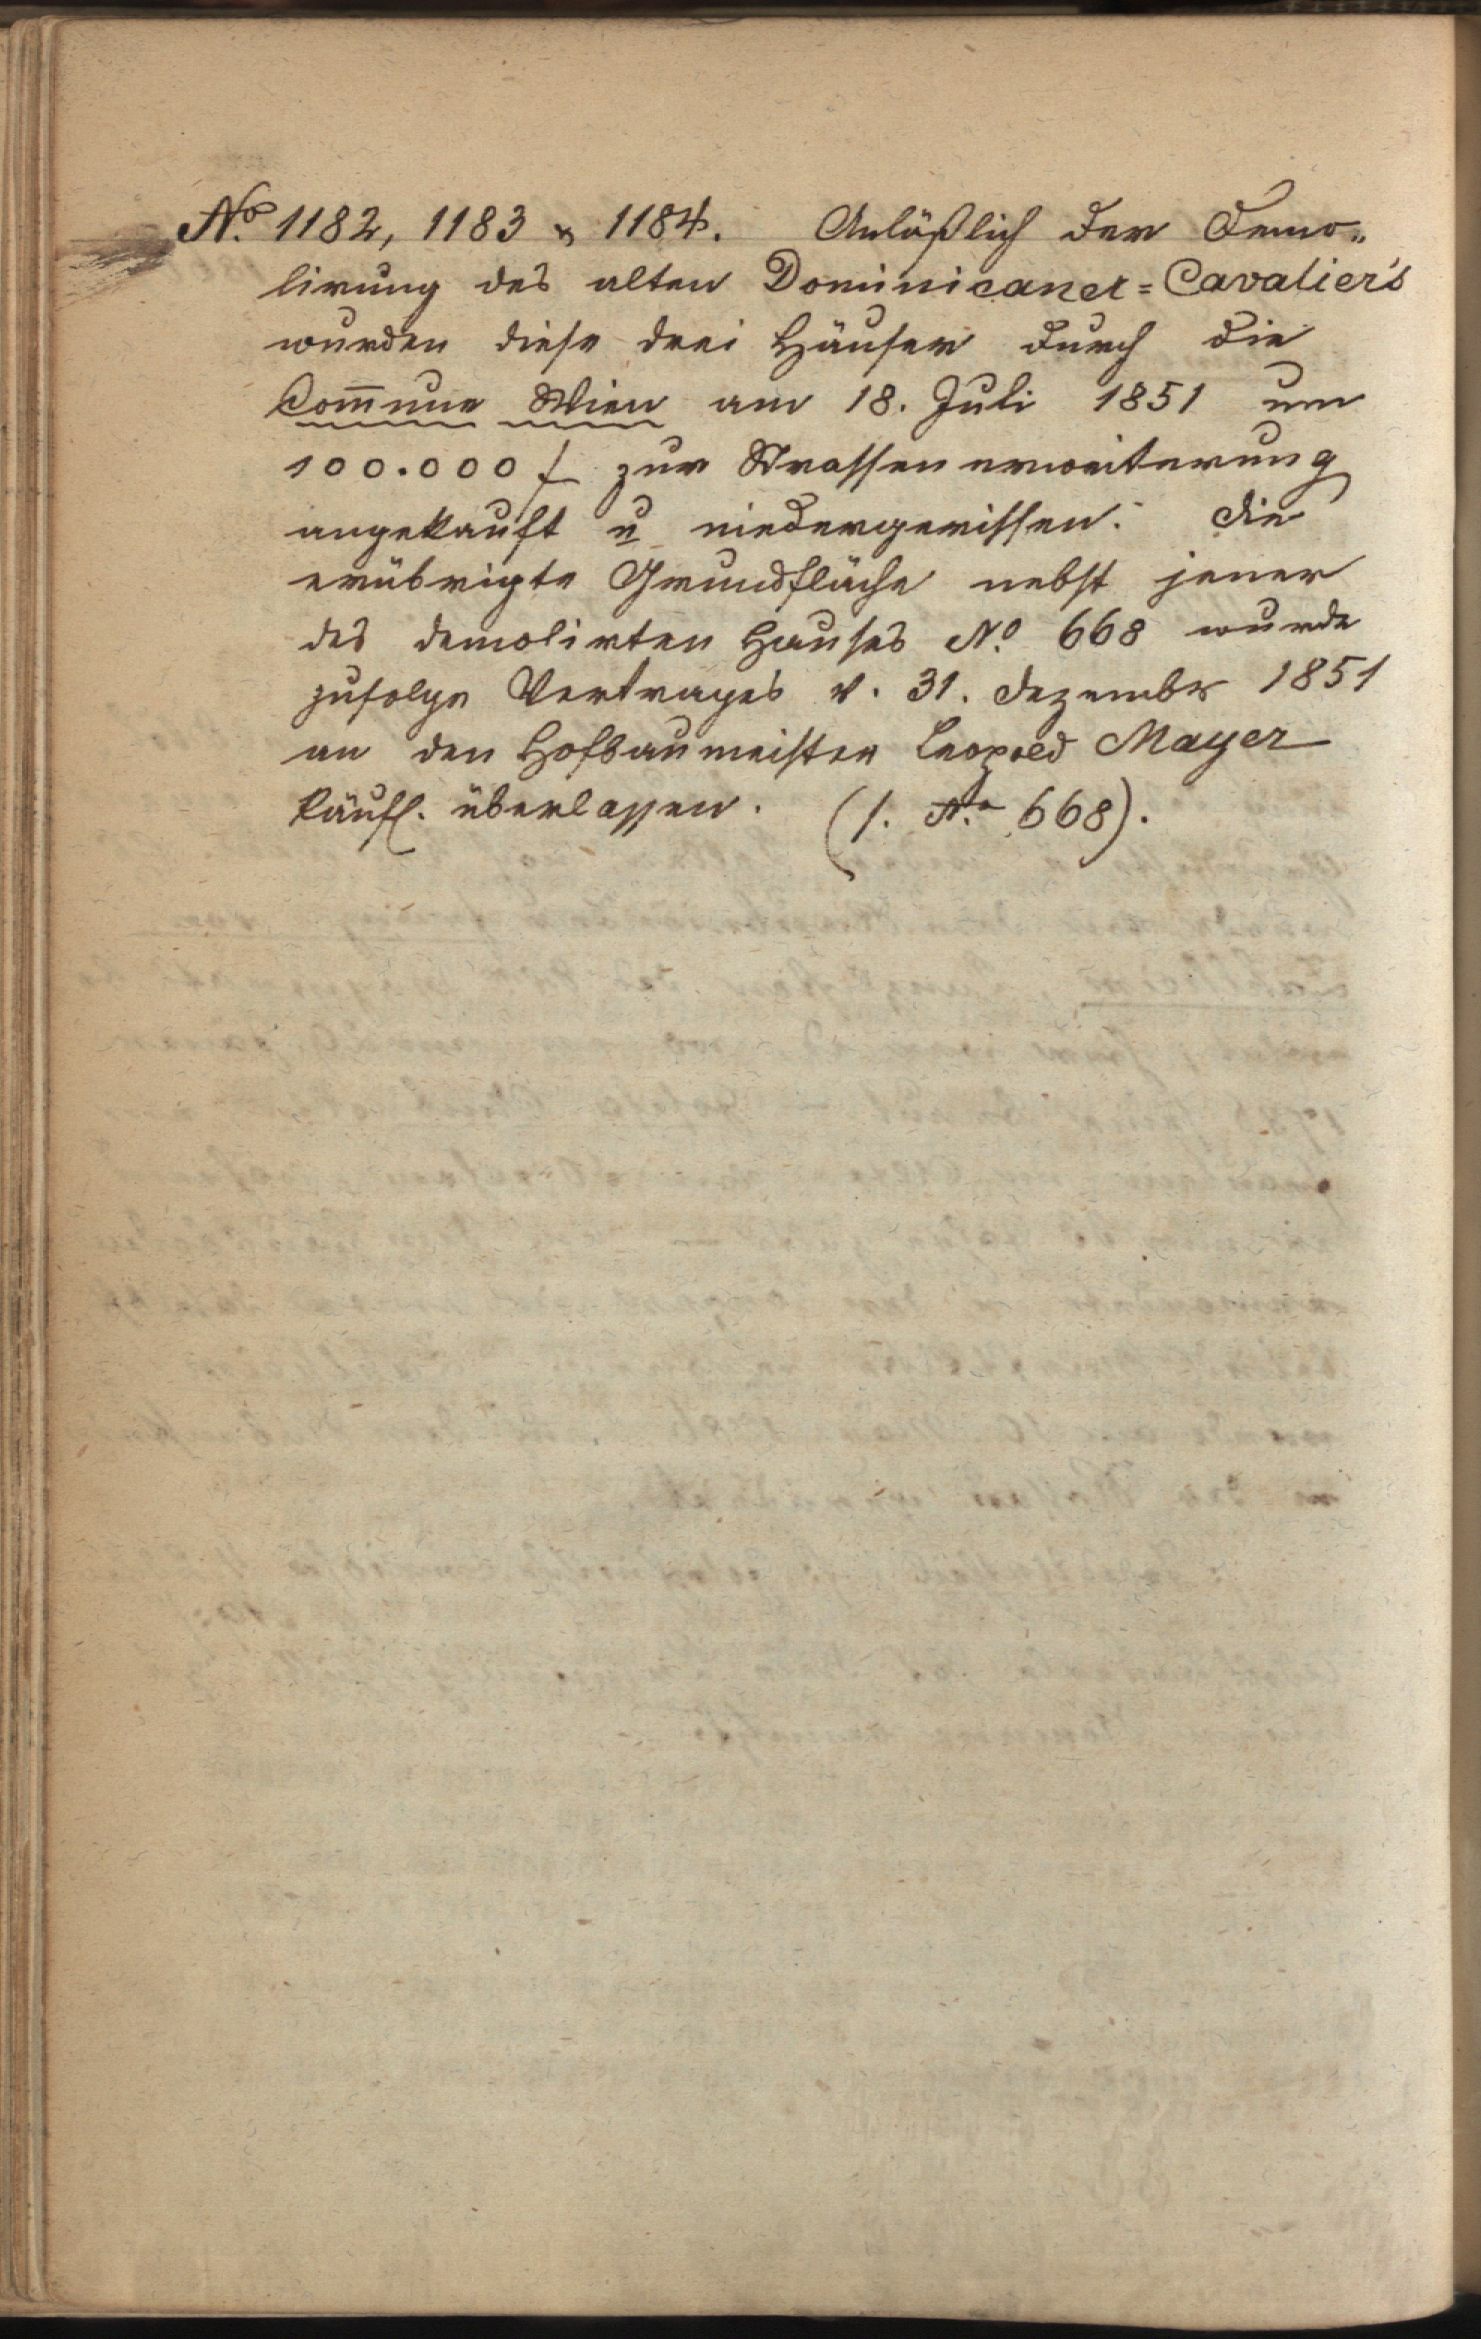 No. 1182, 1183 & 1184. Anläßlich der Demo„
lirung des alten Dominicaner=Cavalier's
wurden diese drei Häuser durch die
Commune Wien am 18. Juli 1851 um
100.000 f zur Strassenerweiterung
angekauft u niedergerissen. Die
erübrigte Grundfläche nebst jener
des demolirten Hauses No. 668 wurde
zufolge Vertrages v. 31. Dezember 1851
an den Hofbaumeister Leopold Mayer
käufl. überlassen. (s. No. 668).